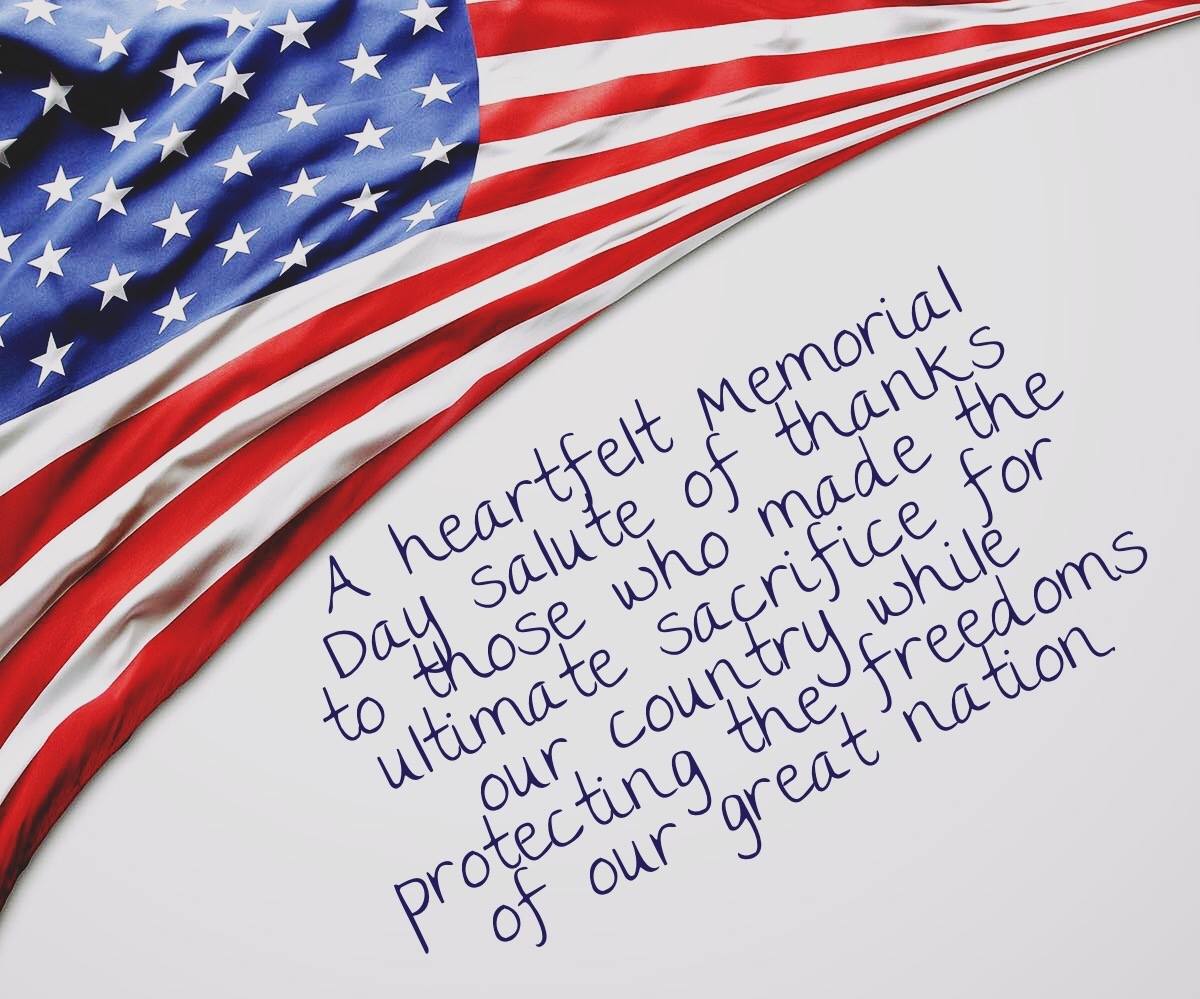 A heartfelt Memorial
Day salute of thanks
to those who made the
ultimate sacrifice for
our country while
protecting the freedoms
of our great nation